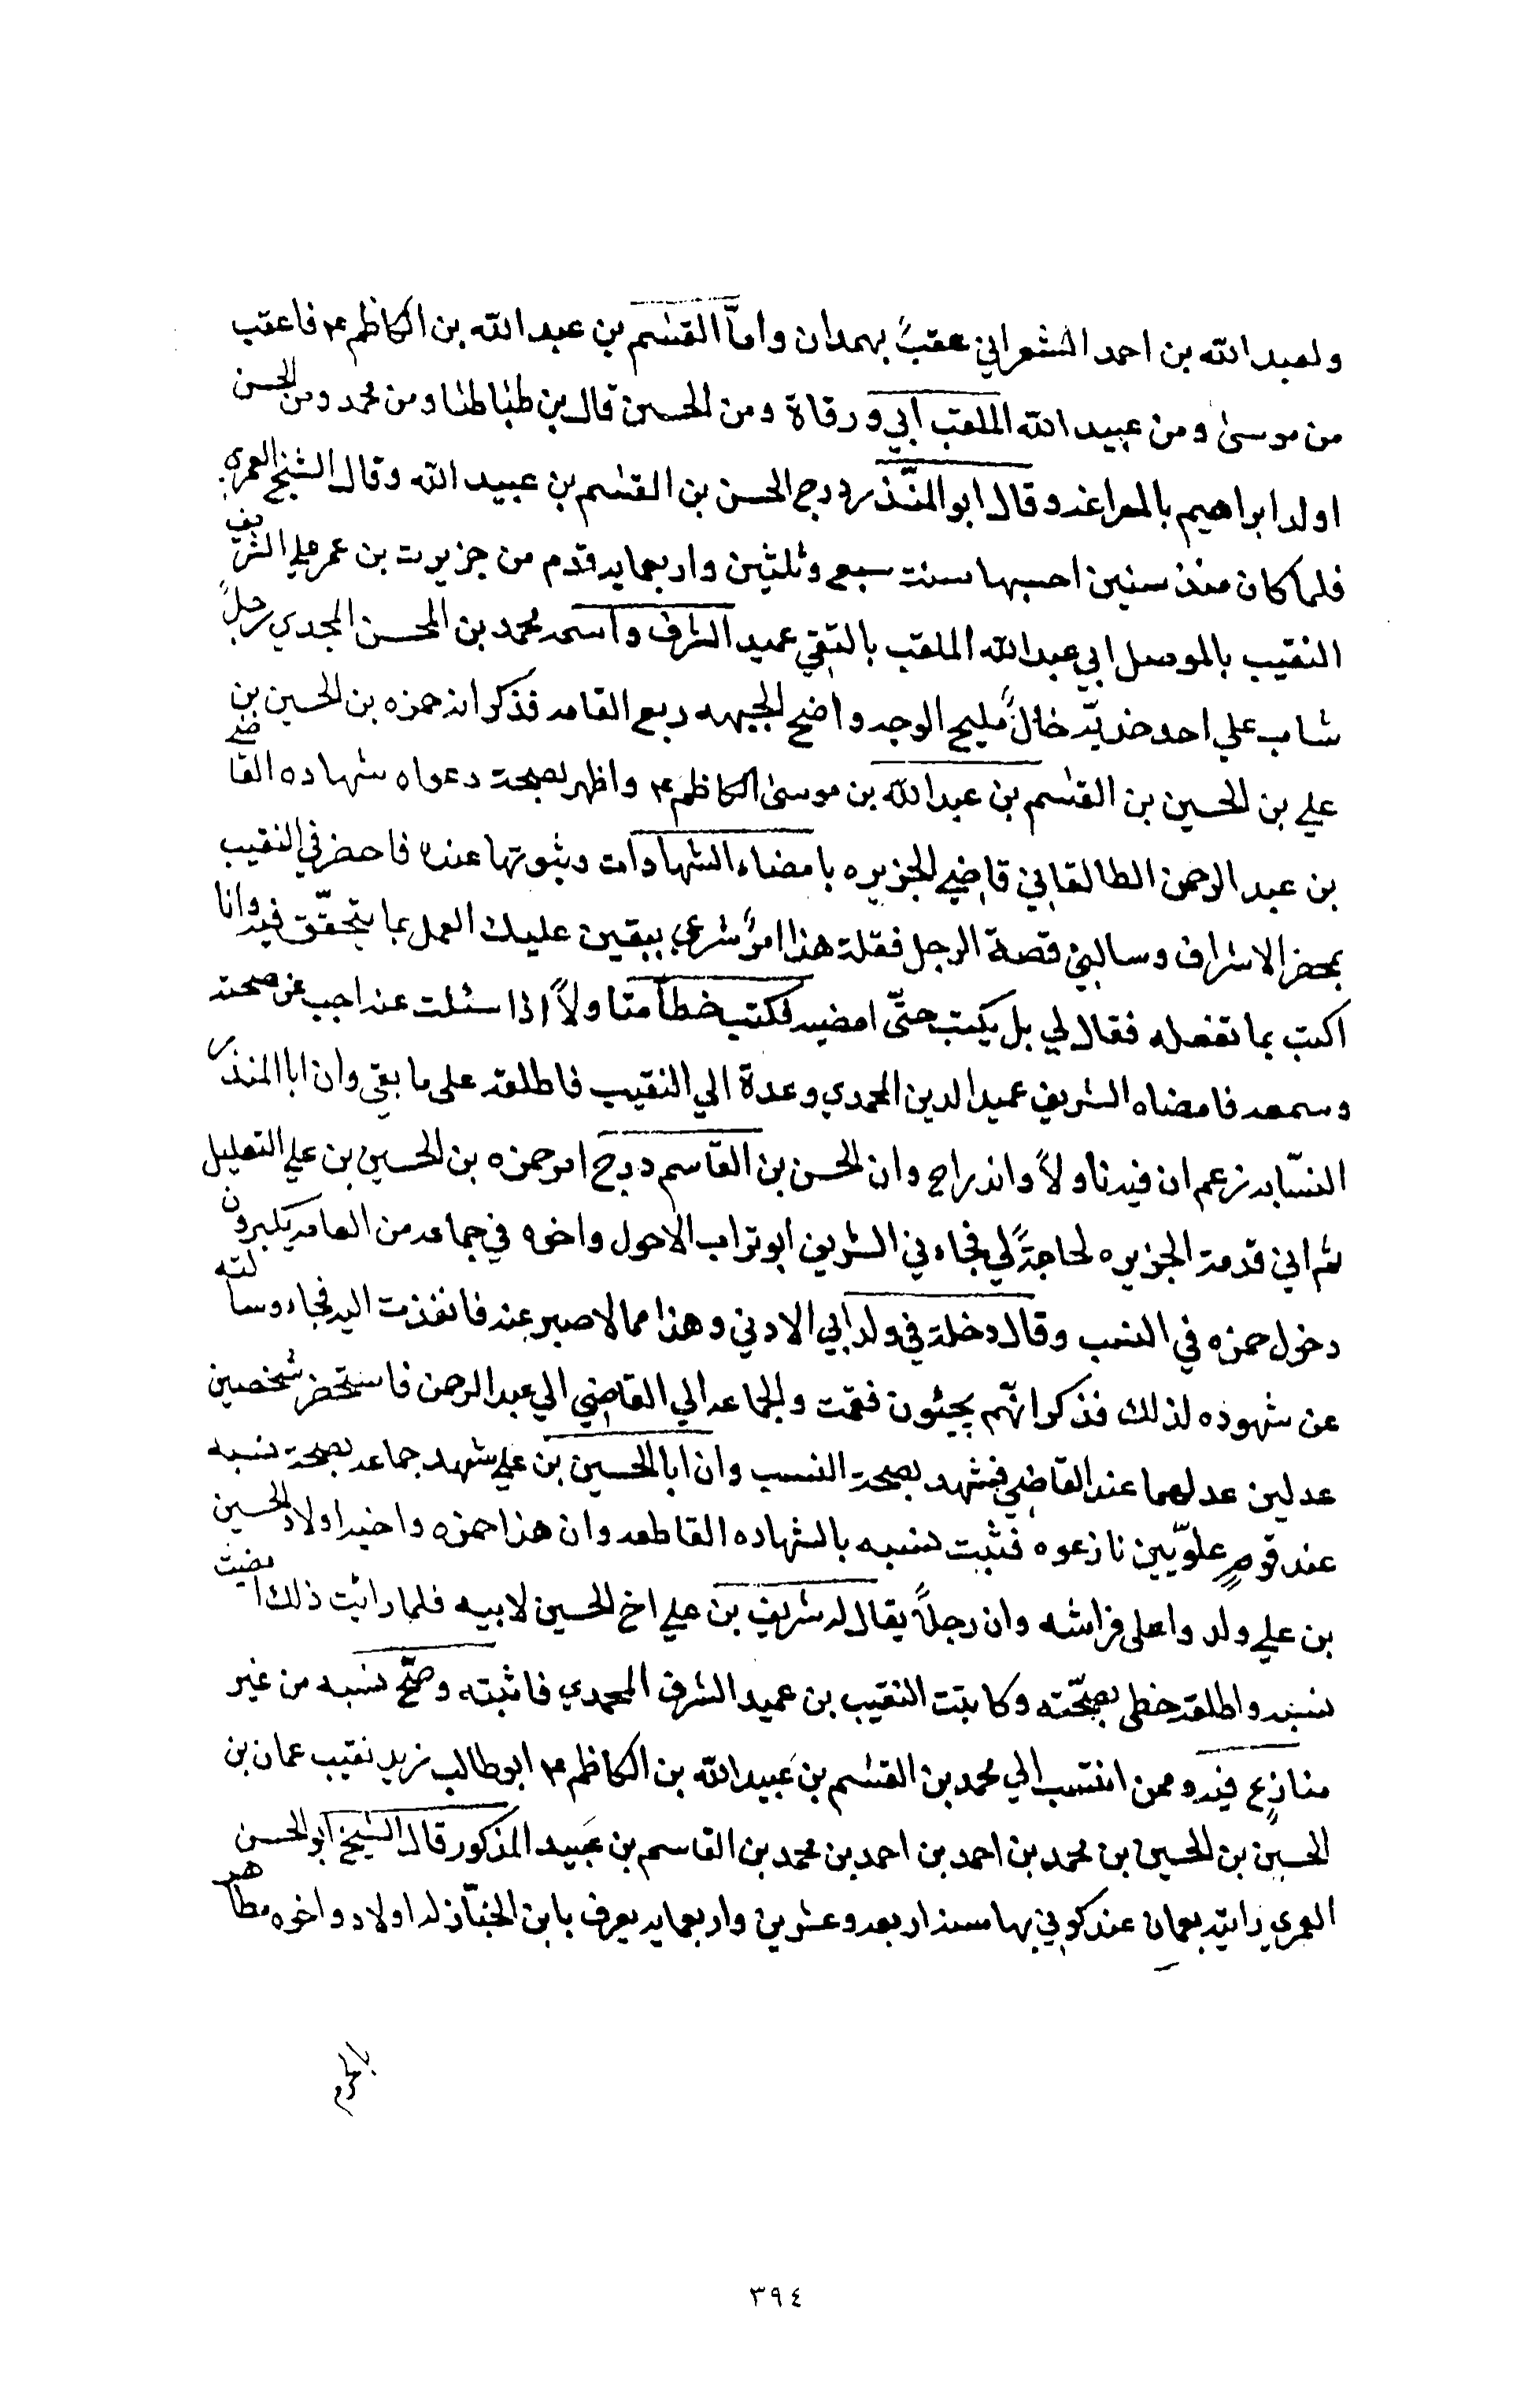 ولعبد الله بن احمد الشعراني عقبٌ بهمدان وامّا القسم بن عبد الله بن الكاظم ع م فاعقب
من موسى ومن عبيد الله الملقب ابي ورقاة ومن الحسين قال بن طباطبا ومن محمد ومن الحسن
اولد ابراهيم بالمراغه وقال ابو المنّذر درج الحسن بن القسم بن عبيد الله وقال الشيخ العمري
فلما كان منذ سنين احسبها سنت سبع وثلثين واربعمايه قدم من جزيرت بن عمر علي الشريف
النقيب بالموصل ابي عبد الله الملقب بالتقي عميد الشرف واسمه محمد بن المحسن المجدي رجلٌ
شاب علي احد خديّه خالٌ مليح الوجه واضح الجبهه ربع القامه فذكر انه حمزه بن الحسين بن
علي بن الحسين بن القسم بن عبد الله بن موسى الكاظم ع م واظهر بصحت دعواه شهاده القاضي
بن عبد الرحمن الطالقاني قاضي الجزيره بامضاء الشهادات وثبوتها عنده فاحضرني النقيب
بمحضر الاشراف وسالني قصة الرجل فقلة هذا امرٌ شرعي ببقين عليك العمل بما يتحقّق فيه وانا
اكتب بما تفعله فقال لي بل يكتب حتّى امضيه فكتب خطاً متاولاً اذا سئلت عنه اجب عن صحته
وسمعه فامضاه الشريف عميد الدين المحمدي وعدة الي النقيب فاطلعته على ما بقي وان ابا المنذر
النسّابه زعم ان فيه تاولاً وانه راح وان الحسن بن القاسم درج امر حمزه بن الحسين بن علي التعليل
ثم اني قدمة الجزيره لحاجةً لي فجاءني الشريف ابو تراب الاحول واخوه في جماعه من العامه يكبرون
دخول حمزه في النسب وقال دخلة في ولد ابي الادني وهذا مما لا صبر عنه فانفذت اليه فجاء وسالته
عن شهوده لذلك فذكر انّهم يجيئون فقمت والجماعه الي القاضي الي عبد الرحمن فاستحضر شخصين
عدلين عدلهما عند القاضي فشهد بصحة النسب وان ابا الحسين بن علي شهد جماعه بصحة نسبه
عند قومٍ علويّين نازعوه فثبت نسبه بالشهاده القاطعه وان هذا حمزه واخيه اولاد الحسين
بن علي ولد واعلى فراشه وان رجلاً يقال له شريف بن علي اخ الحسين لابيه فلما رائت ذلك امضيت
نسبه واطلقة خطى بصحّته وكاتبت النقيب بن عميد الشرف المحمدي فاثبته وصحّ نسبه من غير
منازعٍ فيه وممن انتسب الي محمد بن القسم بن عبيد الله بن الكاظم ع م ابو طالب زيد نقيب عمان بن
الحسين بن الحسين بن محمد بن احمد بن احمد بن محمد بن القاسم بن عبيد المذكور قال الشيخ ابو الحسن
العمري رايته بعمان عند كوني بها سنه اربعه وعشرين واربعمايه يعرف بابن الخبّاز له اولاد واخوه مطاهر
٣٩٤